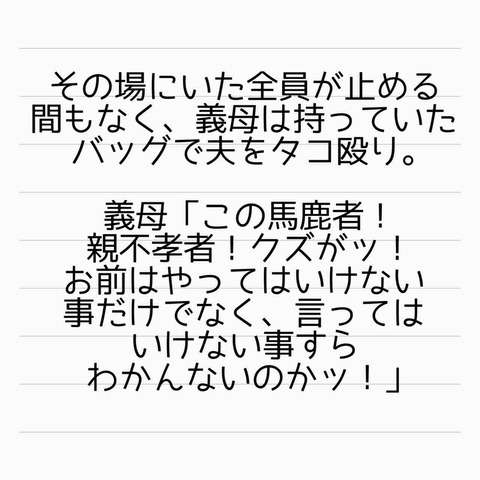 その場にいた全員が止める
間もなく、義母は持っていた
バッグで夫をタコ殴り。
義母「この馬鹿者！
親不孝者！クズがッ！
お前はやってはいけない
事だけでなく、言っては
いけない事すら
わかんないのかッ！」